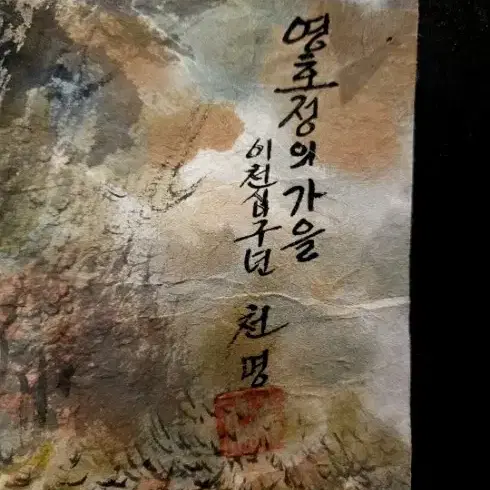 영호정의가을
이천십구년 천명